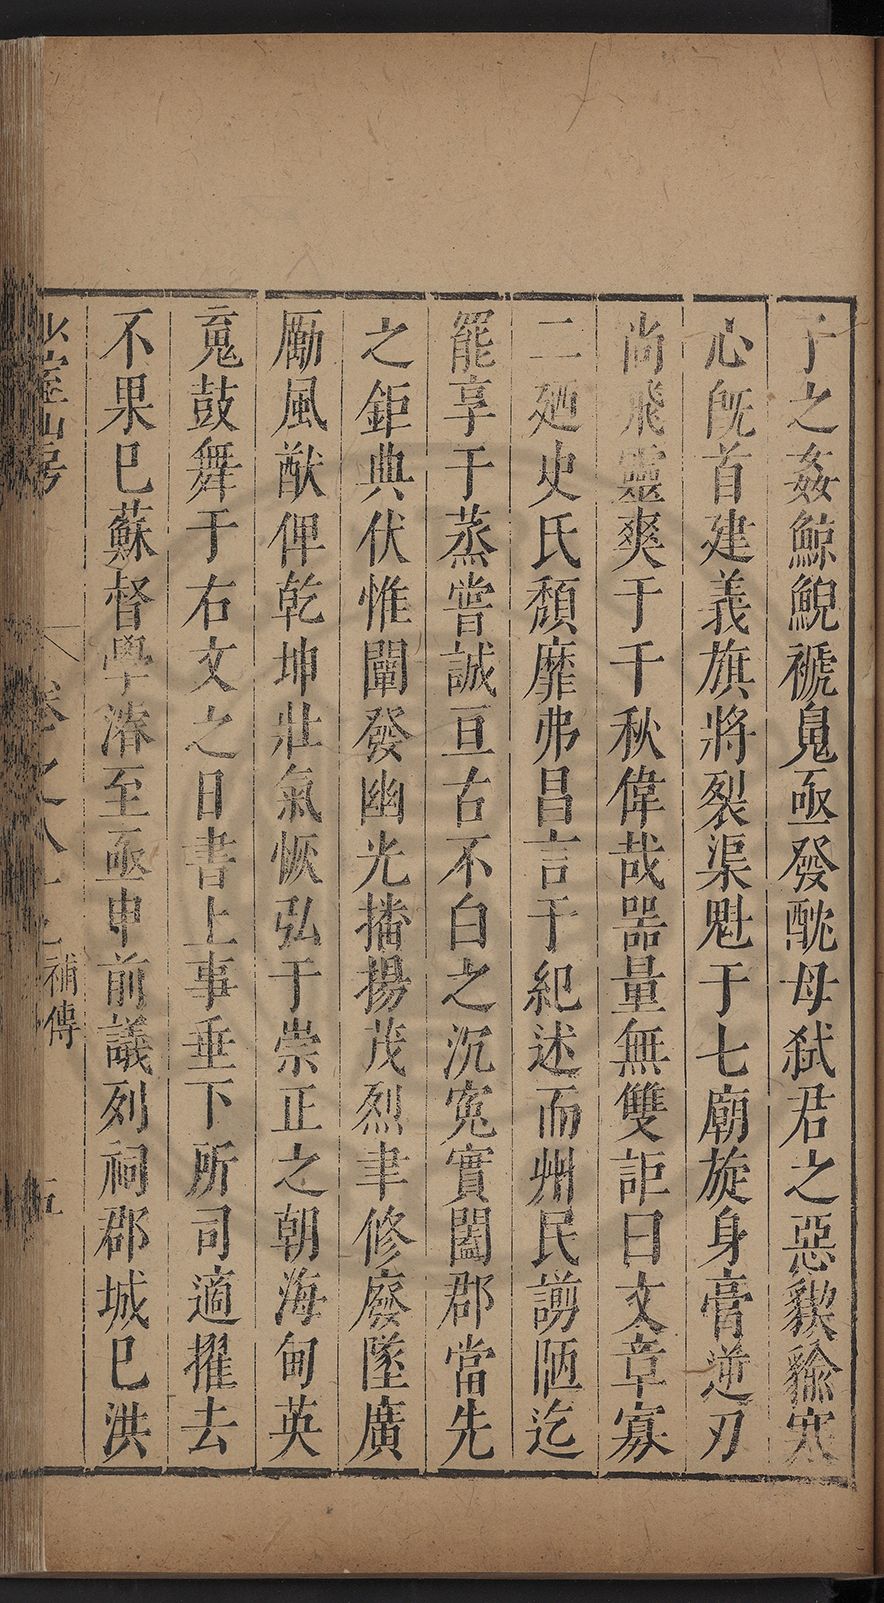 子之姦鯨鯢褫䰟亟發酖母弑君之惡貕貐寒
心旣首建義旗將裂渠魁于七廟旋身膏逆刃
尚飛靈爽于千秋偉哉器量無雙詎曰文章寡
二廼史氏頹靡弗昌言于紀述而州民謭陋迄
罷享于蒸嘗誠亘古不白之沉寃實闔郡當先
之鉅典伏惟闡發幽光播揚茂烈聿修廢墜廣
勵風猷俾乾坤壯氣恢弘于崇正之朝海甸英
䰟鼓舞于右文之日書上事垂下所司適擢去
不果巳蘇督學濬至亟申前議列祠郡城巳洪
少室山房 卷之八十七 補傳 五